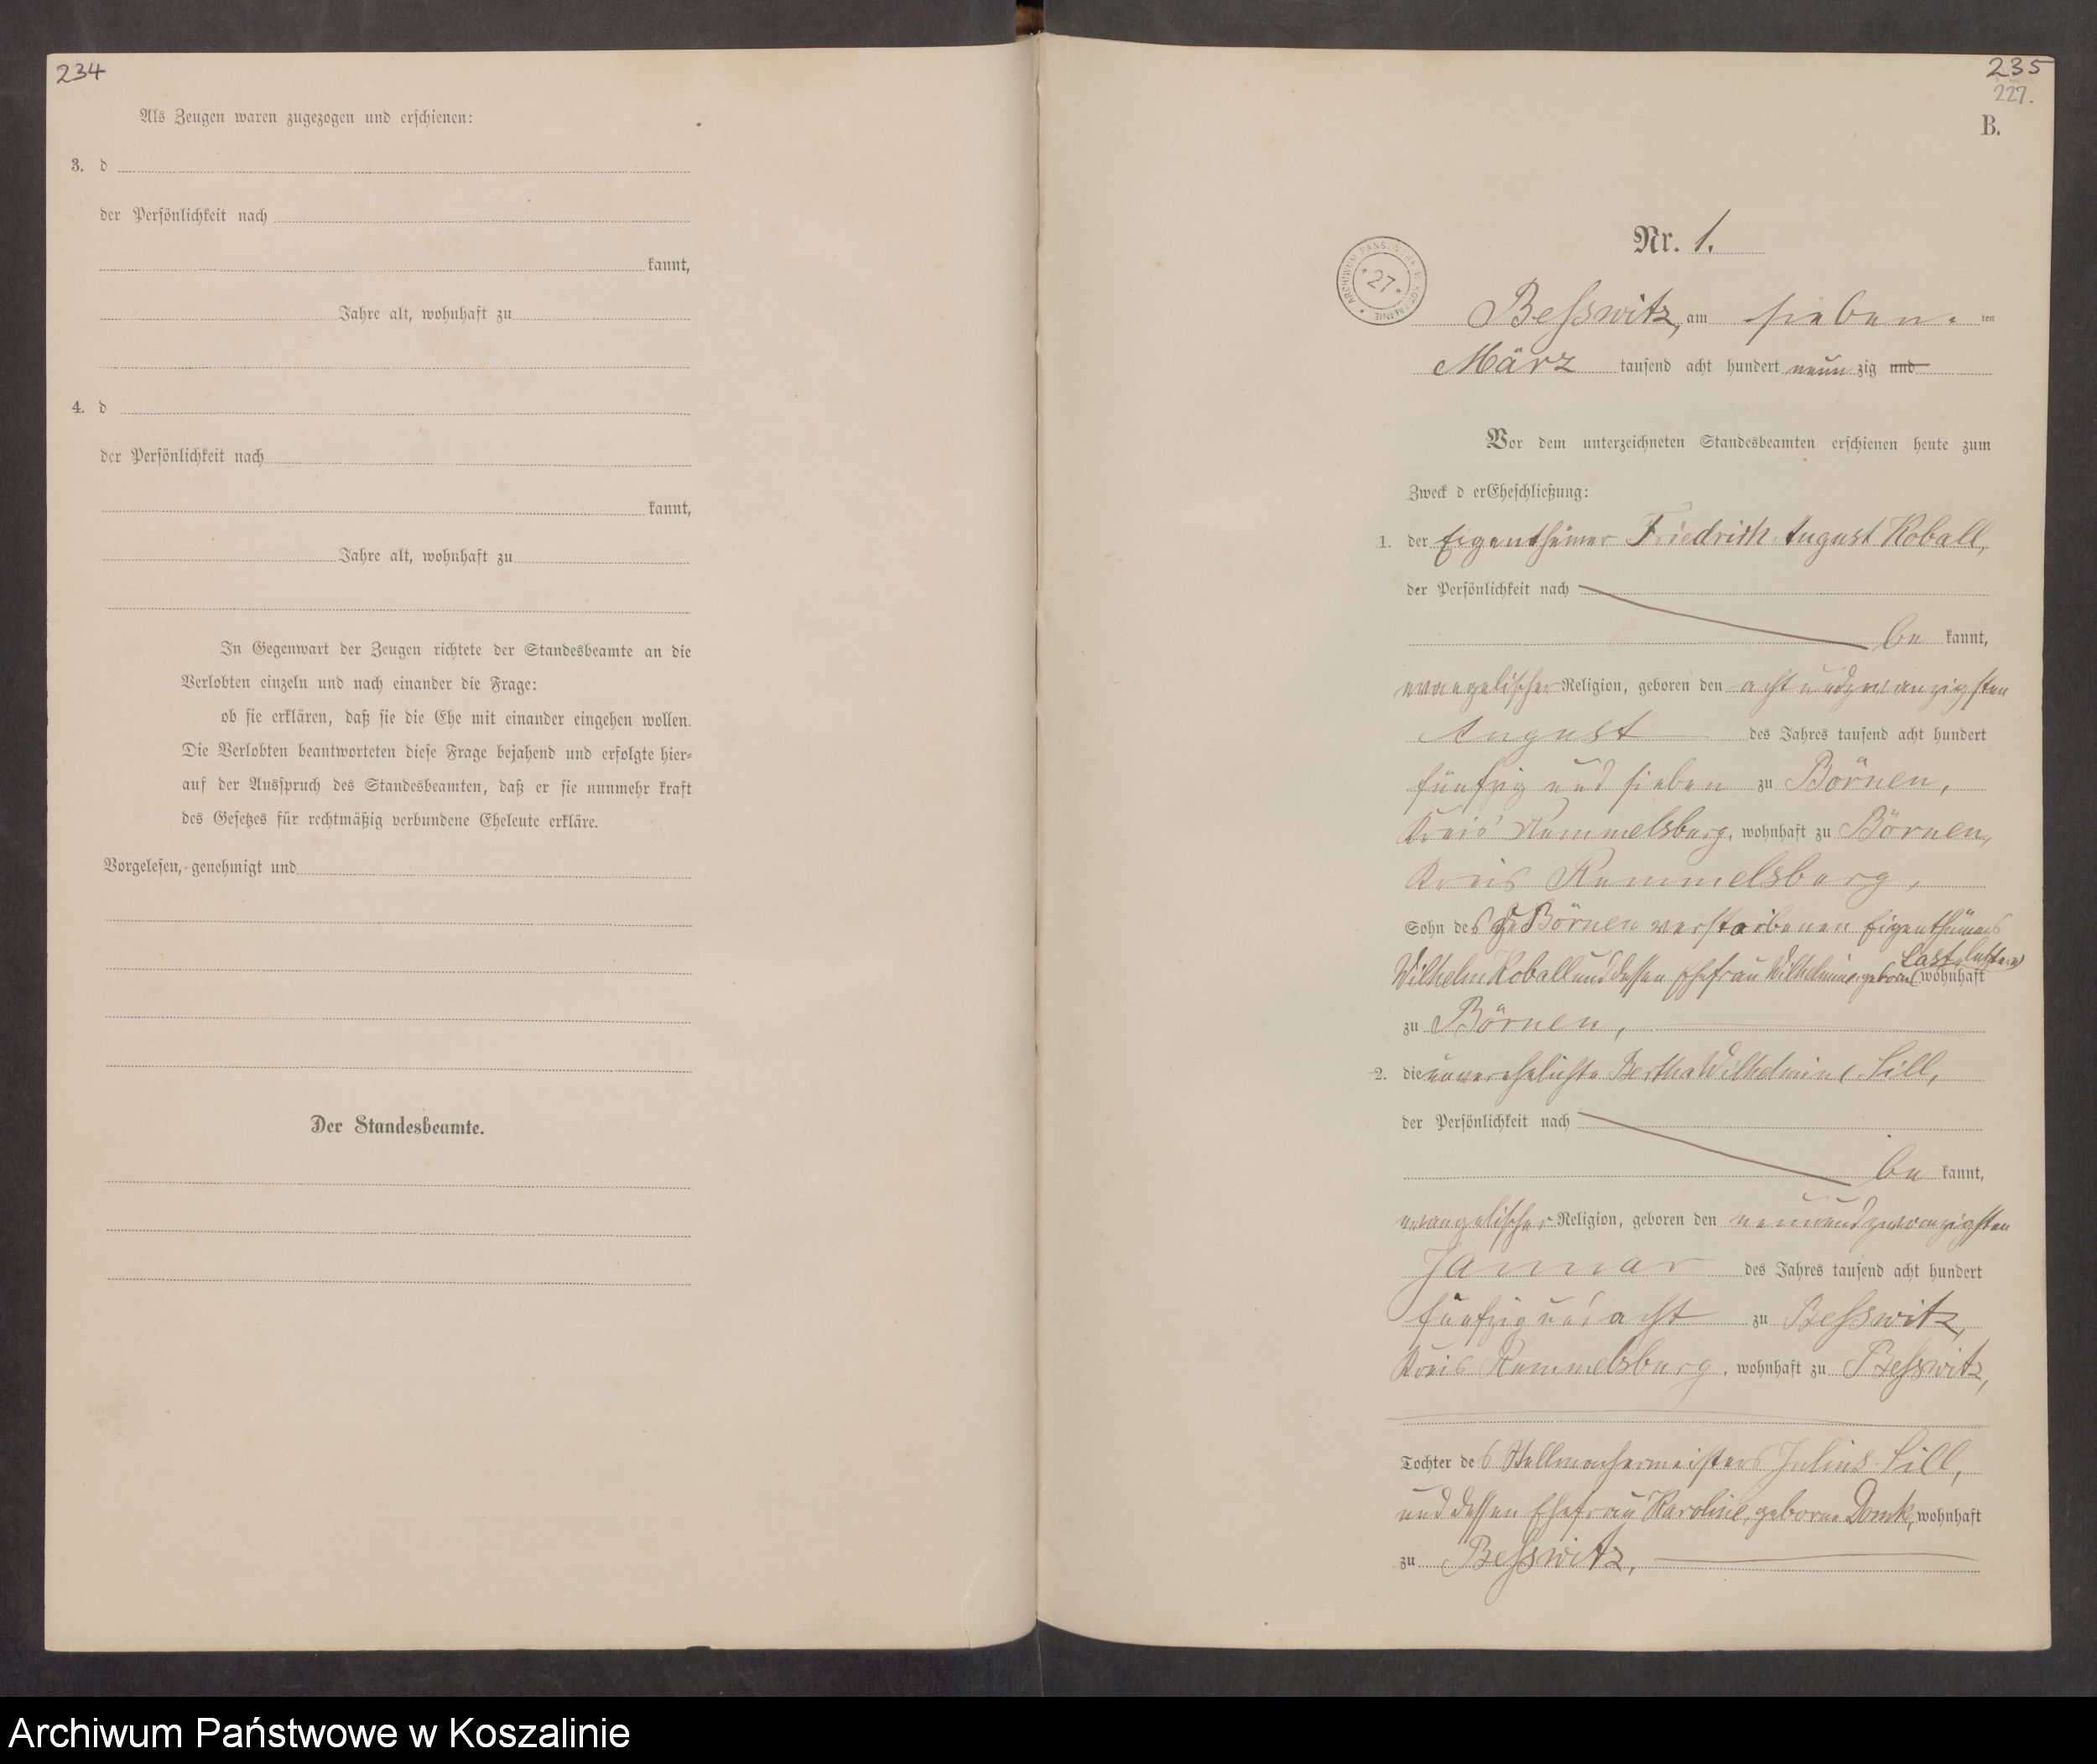 234
Als Zeugen waren zugezogen und erschienen:
3. d
der Persönlichkeit nach
kannt,
Jahre alt, wohnhaft zu
4. d
der Persönlichkeit nach
kannt,
Jahre alt, wohnhaft zu
In Gegenwart der Zeugen richtete der Standesbeamte an die
Verlobten einzeln und nach einander die Frage:
ob sie erklären, daß sie die Ehe mit einander eingehen wollen.
Die Verlobten beantworteten diese Frage bejahend und erfolgte hier-
auf der Ausspruch des Standesbeamten, daß er sie nunmehr kraft
des Gesetzes für rechtmäßig verbundene Eheleute erkläre.
Vorgelesen, genehmigt und
Der Standesbeamte.
235
227.
B.
Nr. 1.
ARCHIWUM PAŃSTWOWE W KOSZALINIE
* 27 *
Beßwitz, am sieben ten
März tausend acht hundert neun zig und
Vor dem unterzeichneten Standesbeamten erschienen heute zum
Zweck d er Eheschließung:
1. der Eigenthümer Friedrich August Koball,
der Persönlichkeit nach
be kannt,
evangelischer Religion, geboren den achtundzwanzigsten
August des Jahres tausend acht hundert
fünfzig und sieben zu Börnen,
Kreis Rummelsburg, wohnhaft zu Börnen,
Kreis Rummelsburg,
Sohn des zu Börnen verstorbenen Eigenthümers
Wilhelm Koball und dessen Ehefrau Wilhelmine geborne Last, letztere wohnhaft
zu Börnen,
2. die unverehelichte Bertha Wilhelmine Lill,
der Persönlichkeit nach
be kannt,
evangelischer Religion, geboren den neunundzwanzigsten
Januar des Jahres tausend acht hundert
fünfzig und acht zu Beßwitz,
Kreis Rummelsburg, wohnhaft zu Beßwitz,
Tochter des Stellmachermeisters Julius Lill,
und dessen Ehefrau Karoline, geborne Domk, wohnhaft
zu Beßwitz,
Archiwum Państwowe w Koszalinie